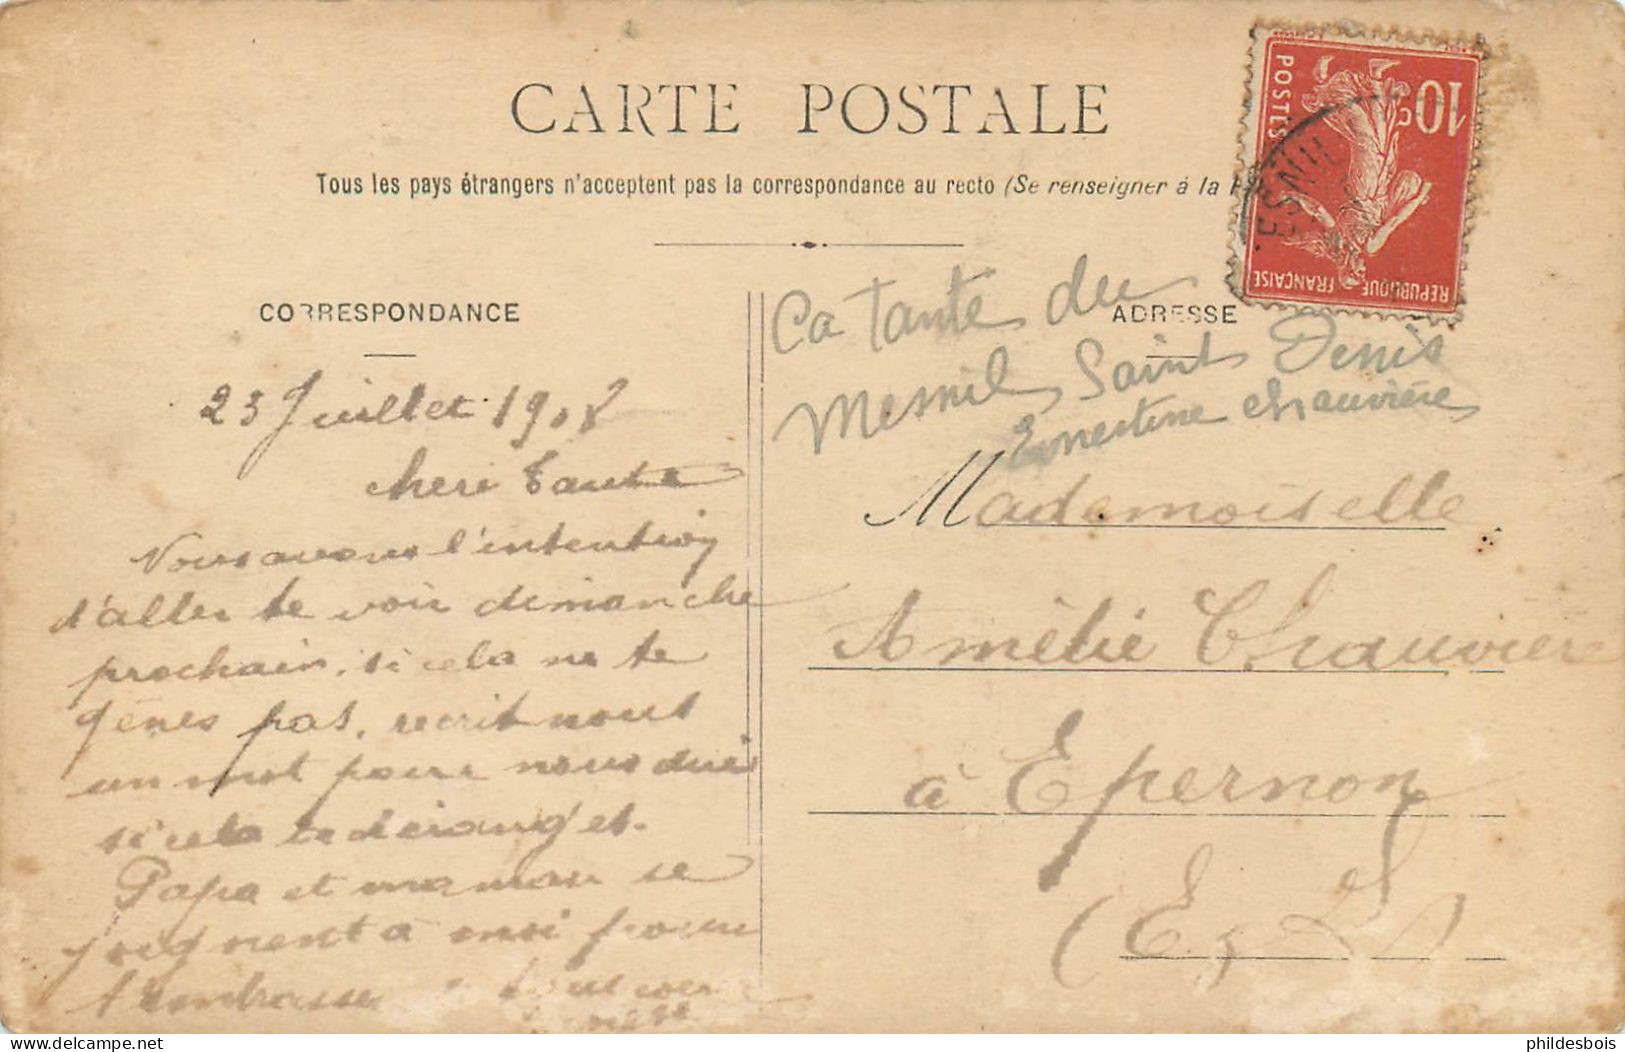 CARTE POSTALE
Tous les pays étrangers n'acceptent pas la correspondance au recto (Se renseigner à la
10 c
POSTES
REPUBLIQUE FRANÇAISE
ESNIL
CORRESPONDANCE
23 Juillet 1908
chere Tante
Nous avons l'intention
d'aller te voir dimanche
prochain, si cela ne te
gênes pas, ecrit nous
un mot pour nous dire
si cela te déranges.
Papa et maman se
joignent à moi pour
t'embrasser
ADRESSE
Ca Tante du
Mesnil Saint Denis
Ernestine Chauvière
Mademoiselle
Amélie Chauviere
à Epernon
(E, L)
phildesbois